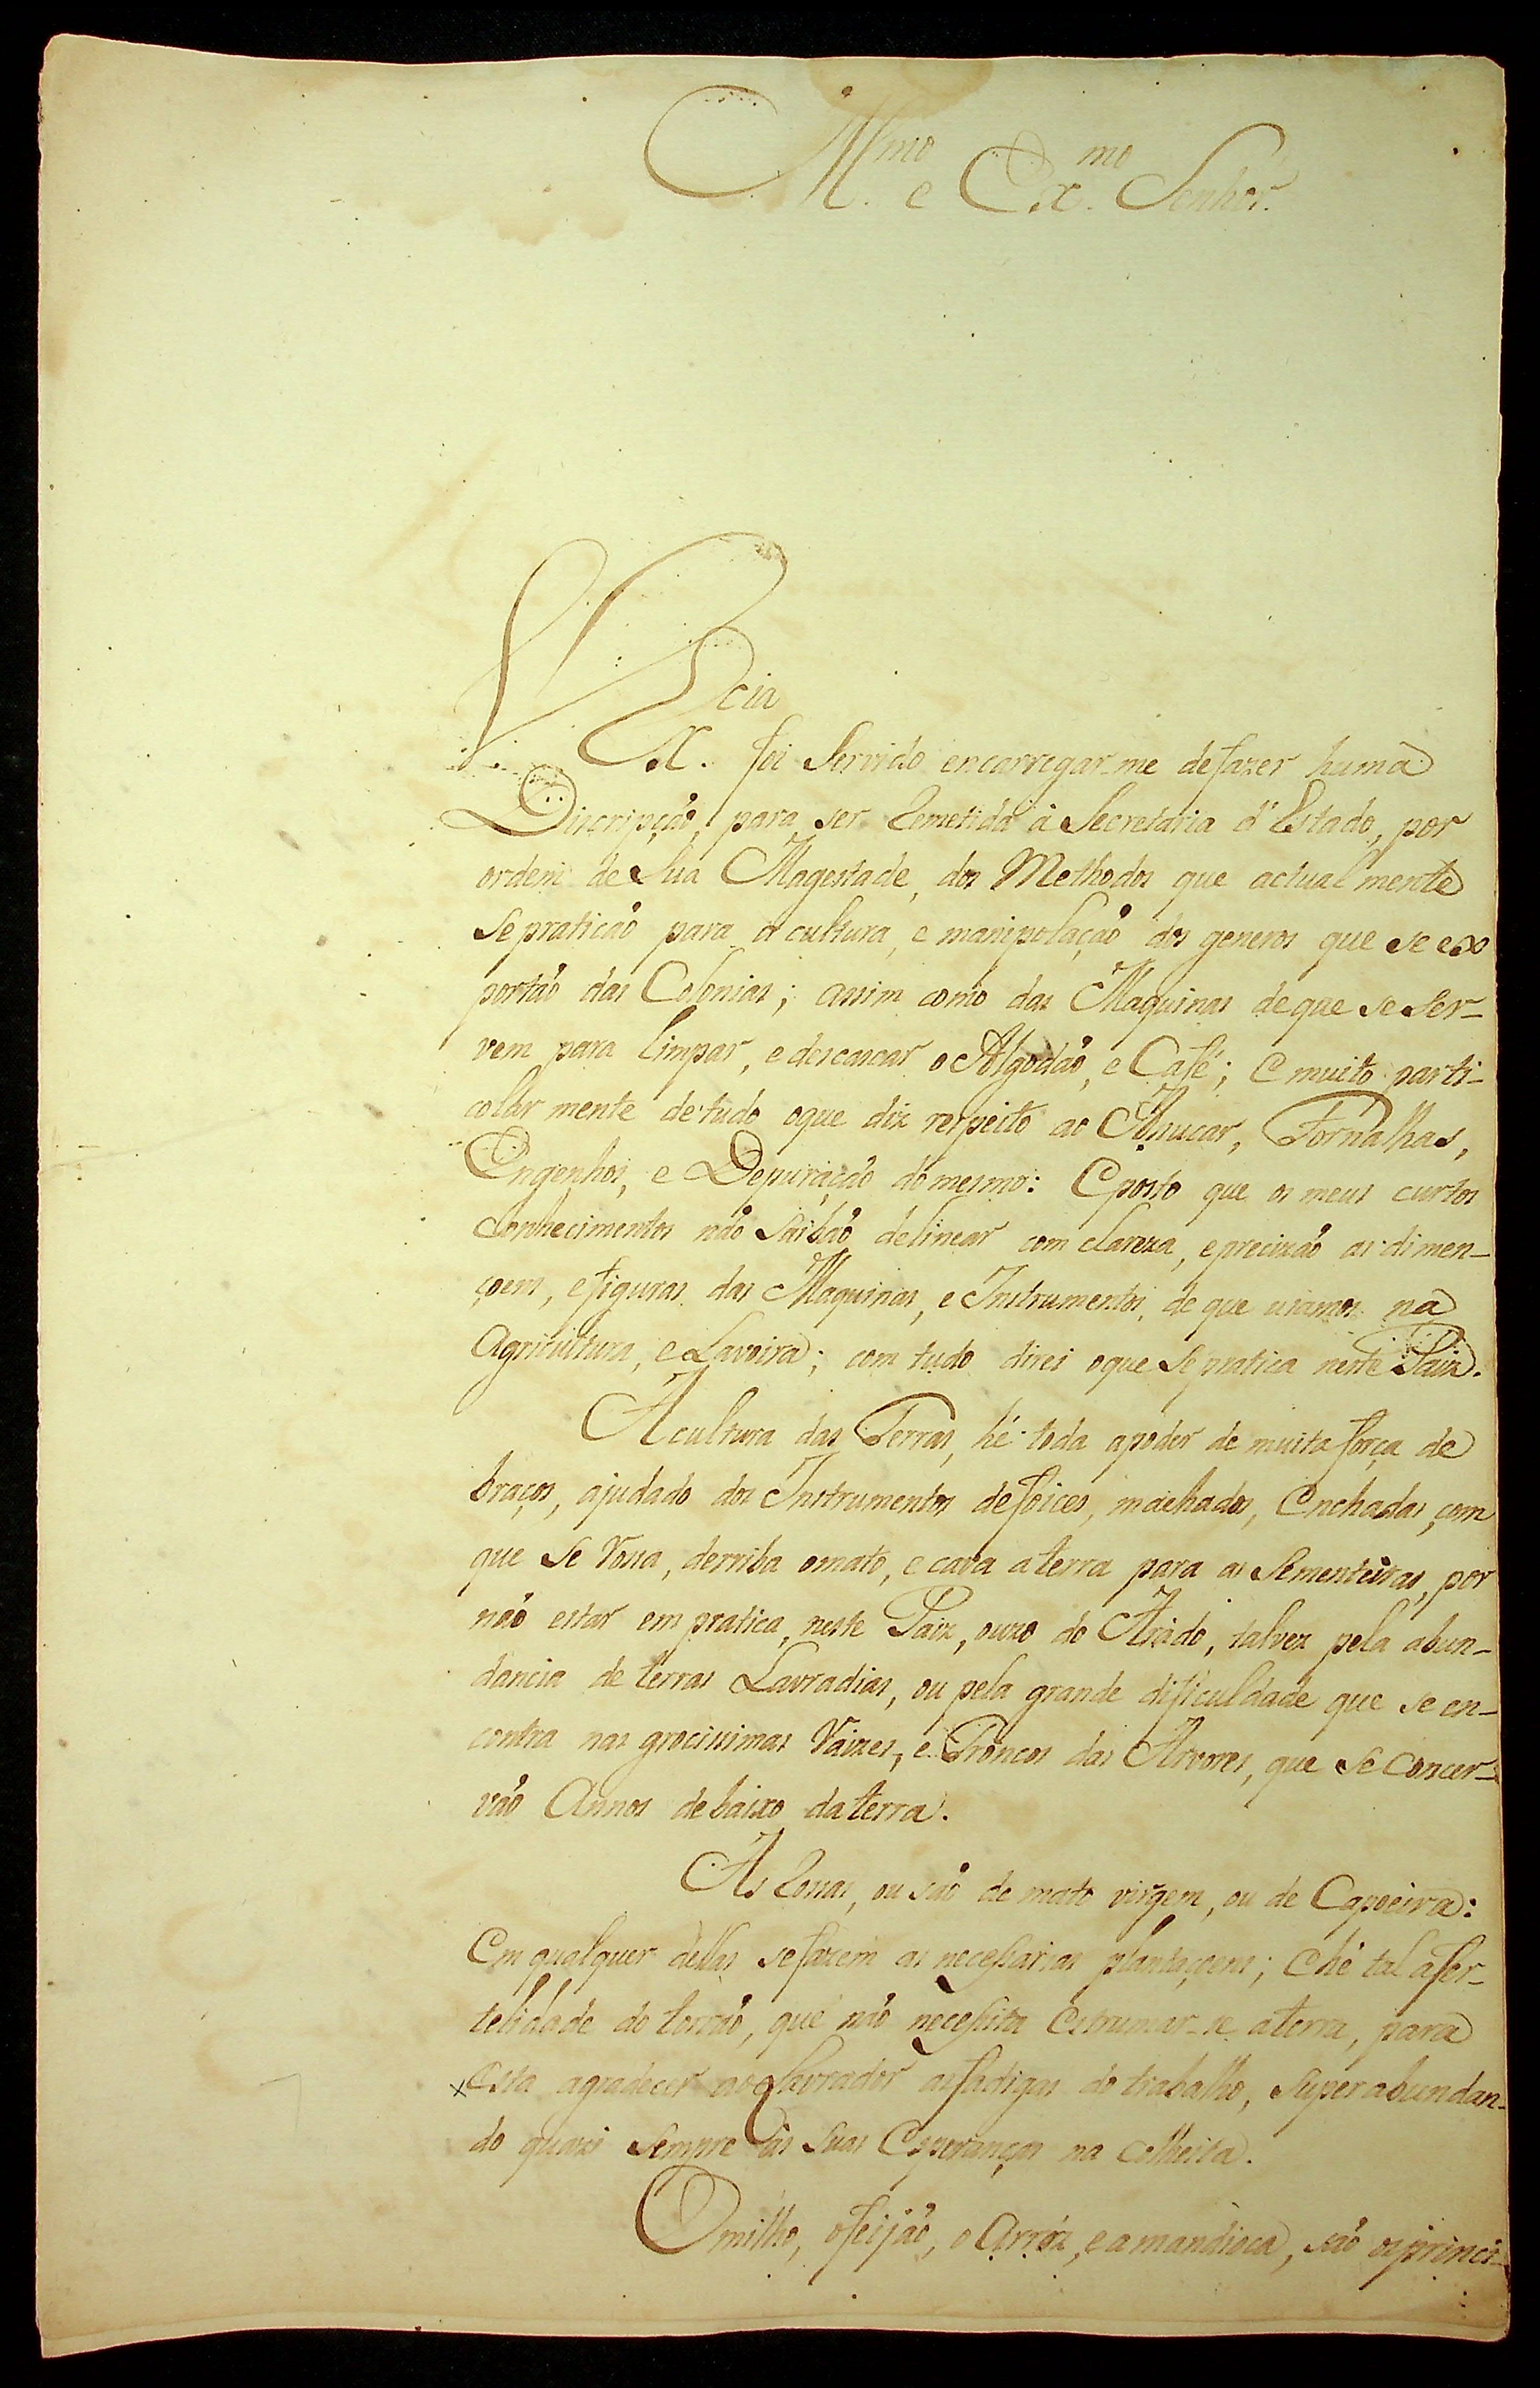 Ill.mo e Ex.mo Senhor.
V. Ex.cia foi Servido encarregar-me defazer huma
Discripção, para ser Remetida à Secretaria d'Estado, por
ordem de Sua Magestade, dos Methodos que actualmente
Sepraticão para a cultura, e manipolação dos generos que se ex
portão das Colonias; assim como das Maquinas deque se Ser-
vem para limpar, e descascar o Algodão, e Café; e muito parti-
colar mente detudo oque diz respeito ao Assucar, Fornalhas,
Engenhos, e Depuração do mesmo: Eposto que os meus curtos
Conhecimentos não Saibão delinear com clareza, eprecizão as dimen-
çoens, efiguras das Maquinas, e Instrumentos, de que uzamos na
Agricultura, e Lavoira; com tudo direi oque Sepratica neste Paiz.
A cultura das Terras, hé toda apoder de muita força de
braços, ajudado dos Instrumentos defoices, machados, Enchadas, com
que Se Rossa, derriba omato, e cava aterra para as Sementeiras, por
não estar em pratica, neste Paiz, ouzo do Arado, talvez pela abun-
dancia de terras Lavradias, ou pela grande dificuldade que se en-
contra nas grocissimas Raizes, e Troncos das Arvores, que Se Concer-
vão Annos debaixo daterra.
As Rossas, ou são de mato virgem, ou de Capoeira:
Em qualquer dellas sefazem as necessarias plantaçoens; Ehé tal afer-
telidade do torrão, que não necessita Estrumar-se aterra, para
x Esta agradecer ao Lavrador asfadigas do trabalho, Superabundan-
do quazi Sempre às Suas Esperanças na Colheita.
Omilho, ofeijão, o Arroz, e a mandioca, são osprinci-